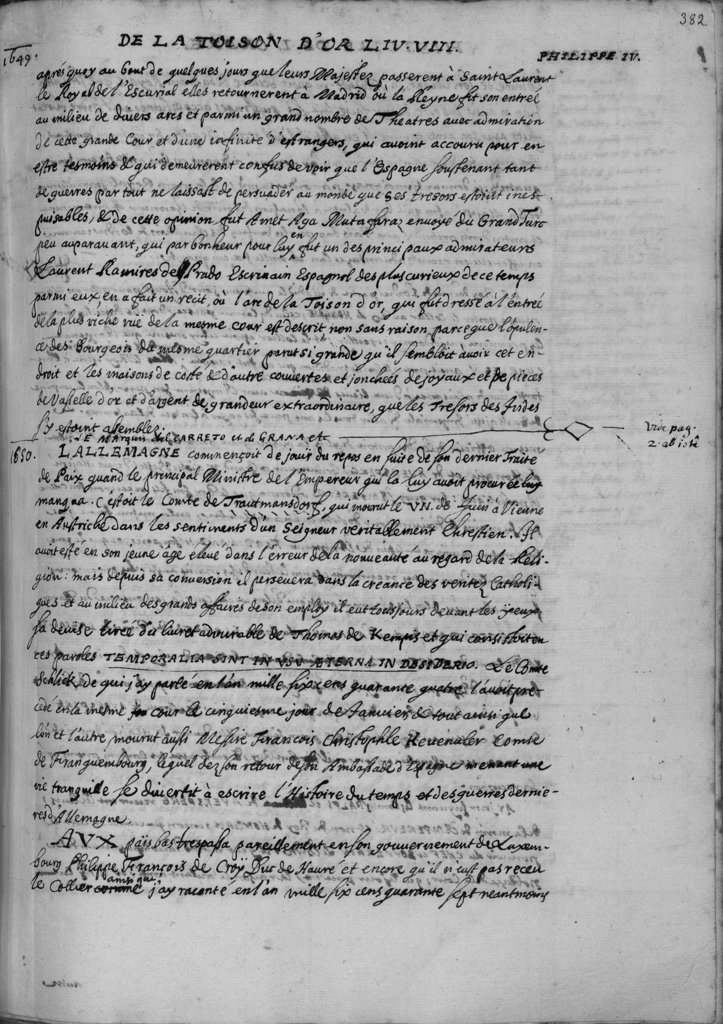 382
DE LA TOISON D'OR LIV. VIII.
1649.
PHILIPPE IV.
aprés quoy au bout de quelques jours que leurs Majestez passerent à Saint Laurent
le Royal de l'Escurial elles retournerent à Madrid où la Reyne fit son entrée
au milieu de divers arcs et parmi un grand nombre de Theatres avec admiration
de cette grande Cour et d'une infinité d'estrangers, qui avoint accouru pour en
estre tesmoins & qui demeurerent confus de voir que l'Espagne soustenant tant
de guerres par tout ne laissast de persuader au monde que ses tresors estoint ines-
puisables, & de cette opinion fut Amet Aga Mutafaraz envoyé du Grand Turc
peu auparauant, qui par bonheur pour luy en fut un des principaux admirateurs
Laurent Ramires de Prado Escrivain Espagnol des plus curieux de ce temps
parmi eux en a fait un recit, où l'arc de la Toison d'or, qui fut dressé à l'entrée
de la plus riche rue de la mesme cour est descrit non sans raison parce que l'opulen-
ce des Bourgeois du mesme quartier parut si grande qu'il sembloit avoir cet en-
droit et les maisons de costé & d'autre couvertes et jonchées de joyaux et de pieces
de Vasselle d'or et d'argent de grandeur extraordinaire, que les Tresors des Indes
s'y estoint assemblez.
LE Marquis del CARRETO et de GRANA etc
Vide pag.
2. ab istâ
1650.
L'ALLEMAGNE commençoit de jouir du repos en suite de son dernier Traité
de Paix quand le principal Ministre de l'Empereur qui la luy avoit procurée luy
manqua. C'estoit le Comte de Trautmansdorf, qui mourut le VII. de Juin à Vienne
en Austriche dans les sentiments d'un Seigneur veritablement Chrestien. Il
avoit esté en son jeune age elevé dans l'erreur de la nouveauté au regard de la Reli-
gion: mais depuis sa conversion il persevera dans la creance des veritez Catholi-
ques et au milieu des grands affaires de son employ il eut tousjours devant les yeux
sa devise tirée du livret admirable de Thomas de Kempis et qui consistoit en
ces paroles TEMPORALIA SINT IN USU ÆTERNA IN DESIDERIO. Le Comte
Schlick de qui j'ay parlé en l'an mille six cens quarante quatre l'avoit pre-
cedé en la mesme cour le cinquiesme jour de Janvier, & tout ainsi que
l'on et l'autre mourut aussi Messire François Christophle Kevenuler Comte
de Franquembourg, lequel dez son retour de son Ambassade d'Espagne menant une
vie tranquille se divertit à escrire l'Histoire du temps et des guerres dernie-
res d'Allemagne.
AUX païs bas trespassa pareillement en son gouvernement de Luxem-
bourg Philippe François de Croÿ Duc de Havré et encore qu'il n'eust pas receu
le Collier ainsi que j'ay raconté en l'an mille six cens quarante sept neantmoins